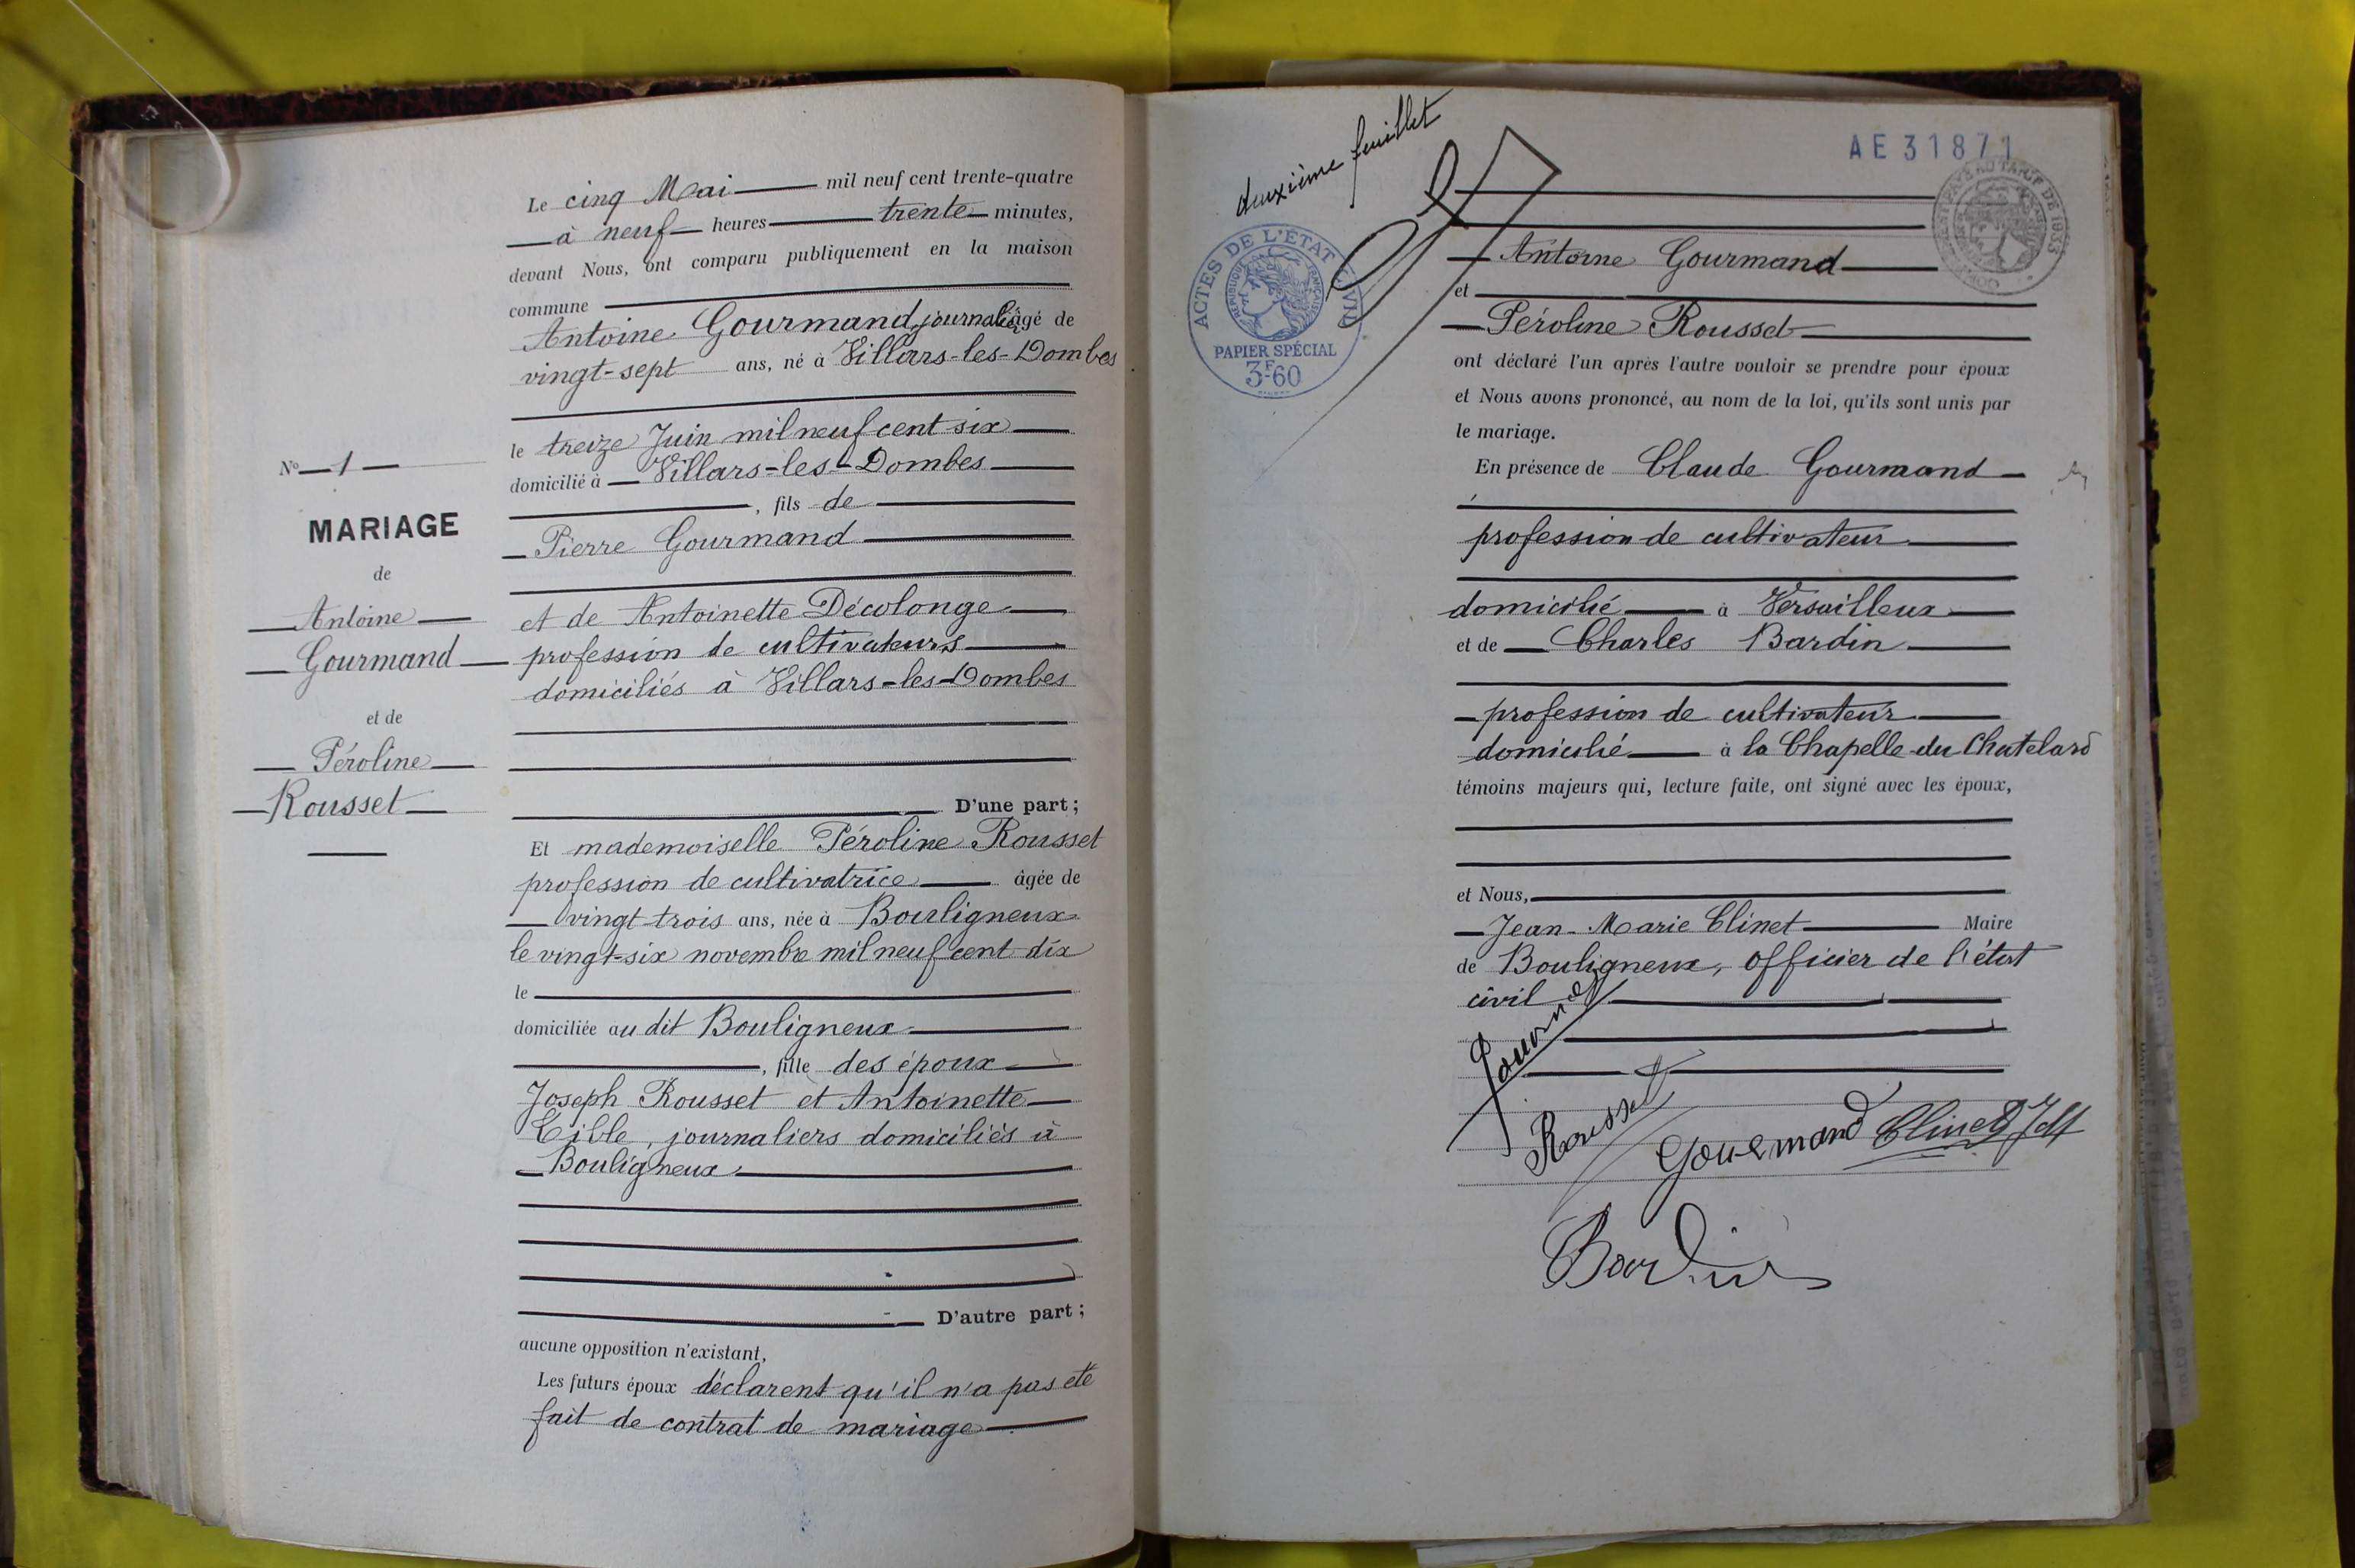 Le cinq Mai mil neuf cent trente-quatre
à neuf heures trente minutes,
devant Nous, ont comparu publiquement en la maison
commune
Antoine Gourmand, journalier âgé de
vingt-sept ans, né à Villars-les-Dombes
le treize Juin mil neuf cent six
domicilié à Villars-les-Dombes
, fils de
Pierre Gourmand
et de Antoinette Décolonge
profession de cultivateurs
domiciliés à Villars-les-Dombes
D'une part ;
Et mademoiselle Péroline Rousset
profession de cultivatrice âgée de
vingt-trois ans, née à Bouligneux
le vingt-six novembre mil neuf cent dix
le
domiciliée au dit Bouligneux
, fille des époux
Joseph Rousset et Antoinette
Cible, journaliers domiciliés à
Bouligneux
D'autre part ;
aucune opposition n'existant,
Les futurs époux déclarent qu'il n'a pas été
fait de contrat de mariage
N° 1
MARIAGE
de
Antoine
Gourmand
et de
Péroline
Rousset
deuxième feuillet
AE 31871
ACTES DE L'ÉTAT CIVIL
RÉPUBLIQUE FRANÇAISE
PAPIER SPÉCIAL
3F60
TARIF DE 1933
Antoine Gourmand
et
Péroline Rousset
ont déclaré l'un après l'autre vouloir se prendre pour époux
et Nous avons prononcé, au nom de la loi, qu'ils sont unis par
le mariage.
En présence de Claude Gourmand
profession de cultivateur
domicilié à Versailleux
et de Charles Bardin
profession de cultivateur
domicilié à la Chapelle-du-Chatelard
témoins majeurs qui, lecture faite, ont signé avec les époux,
et Nous,
Jean-Marie Clinet Maire
de Bouligneux, officier de l'état
civil
Rousset
Gourmand
Clinet
Bardin